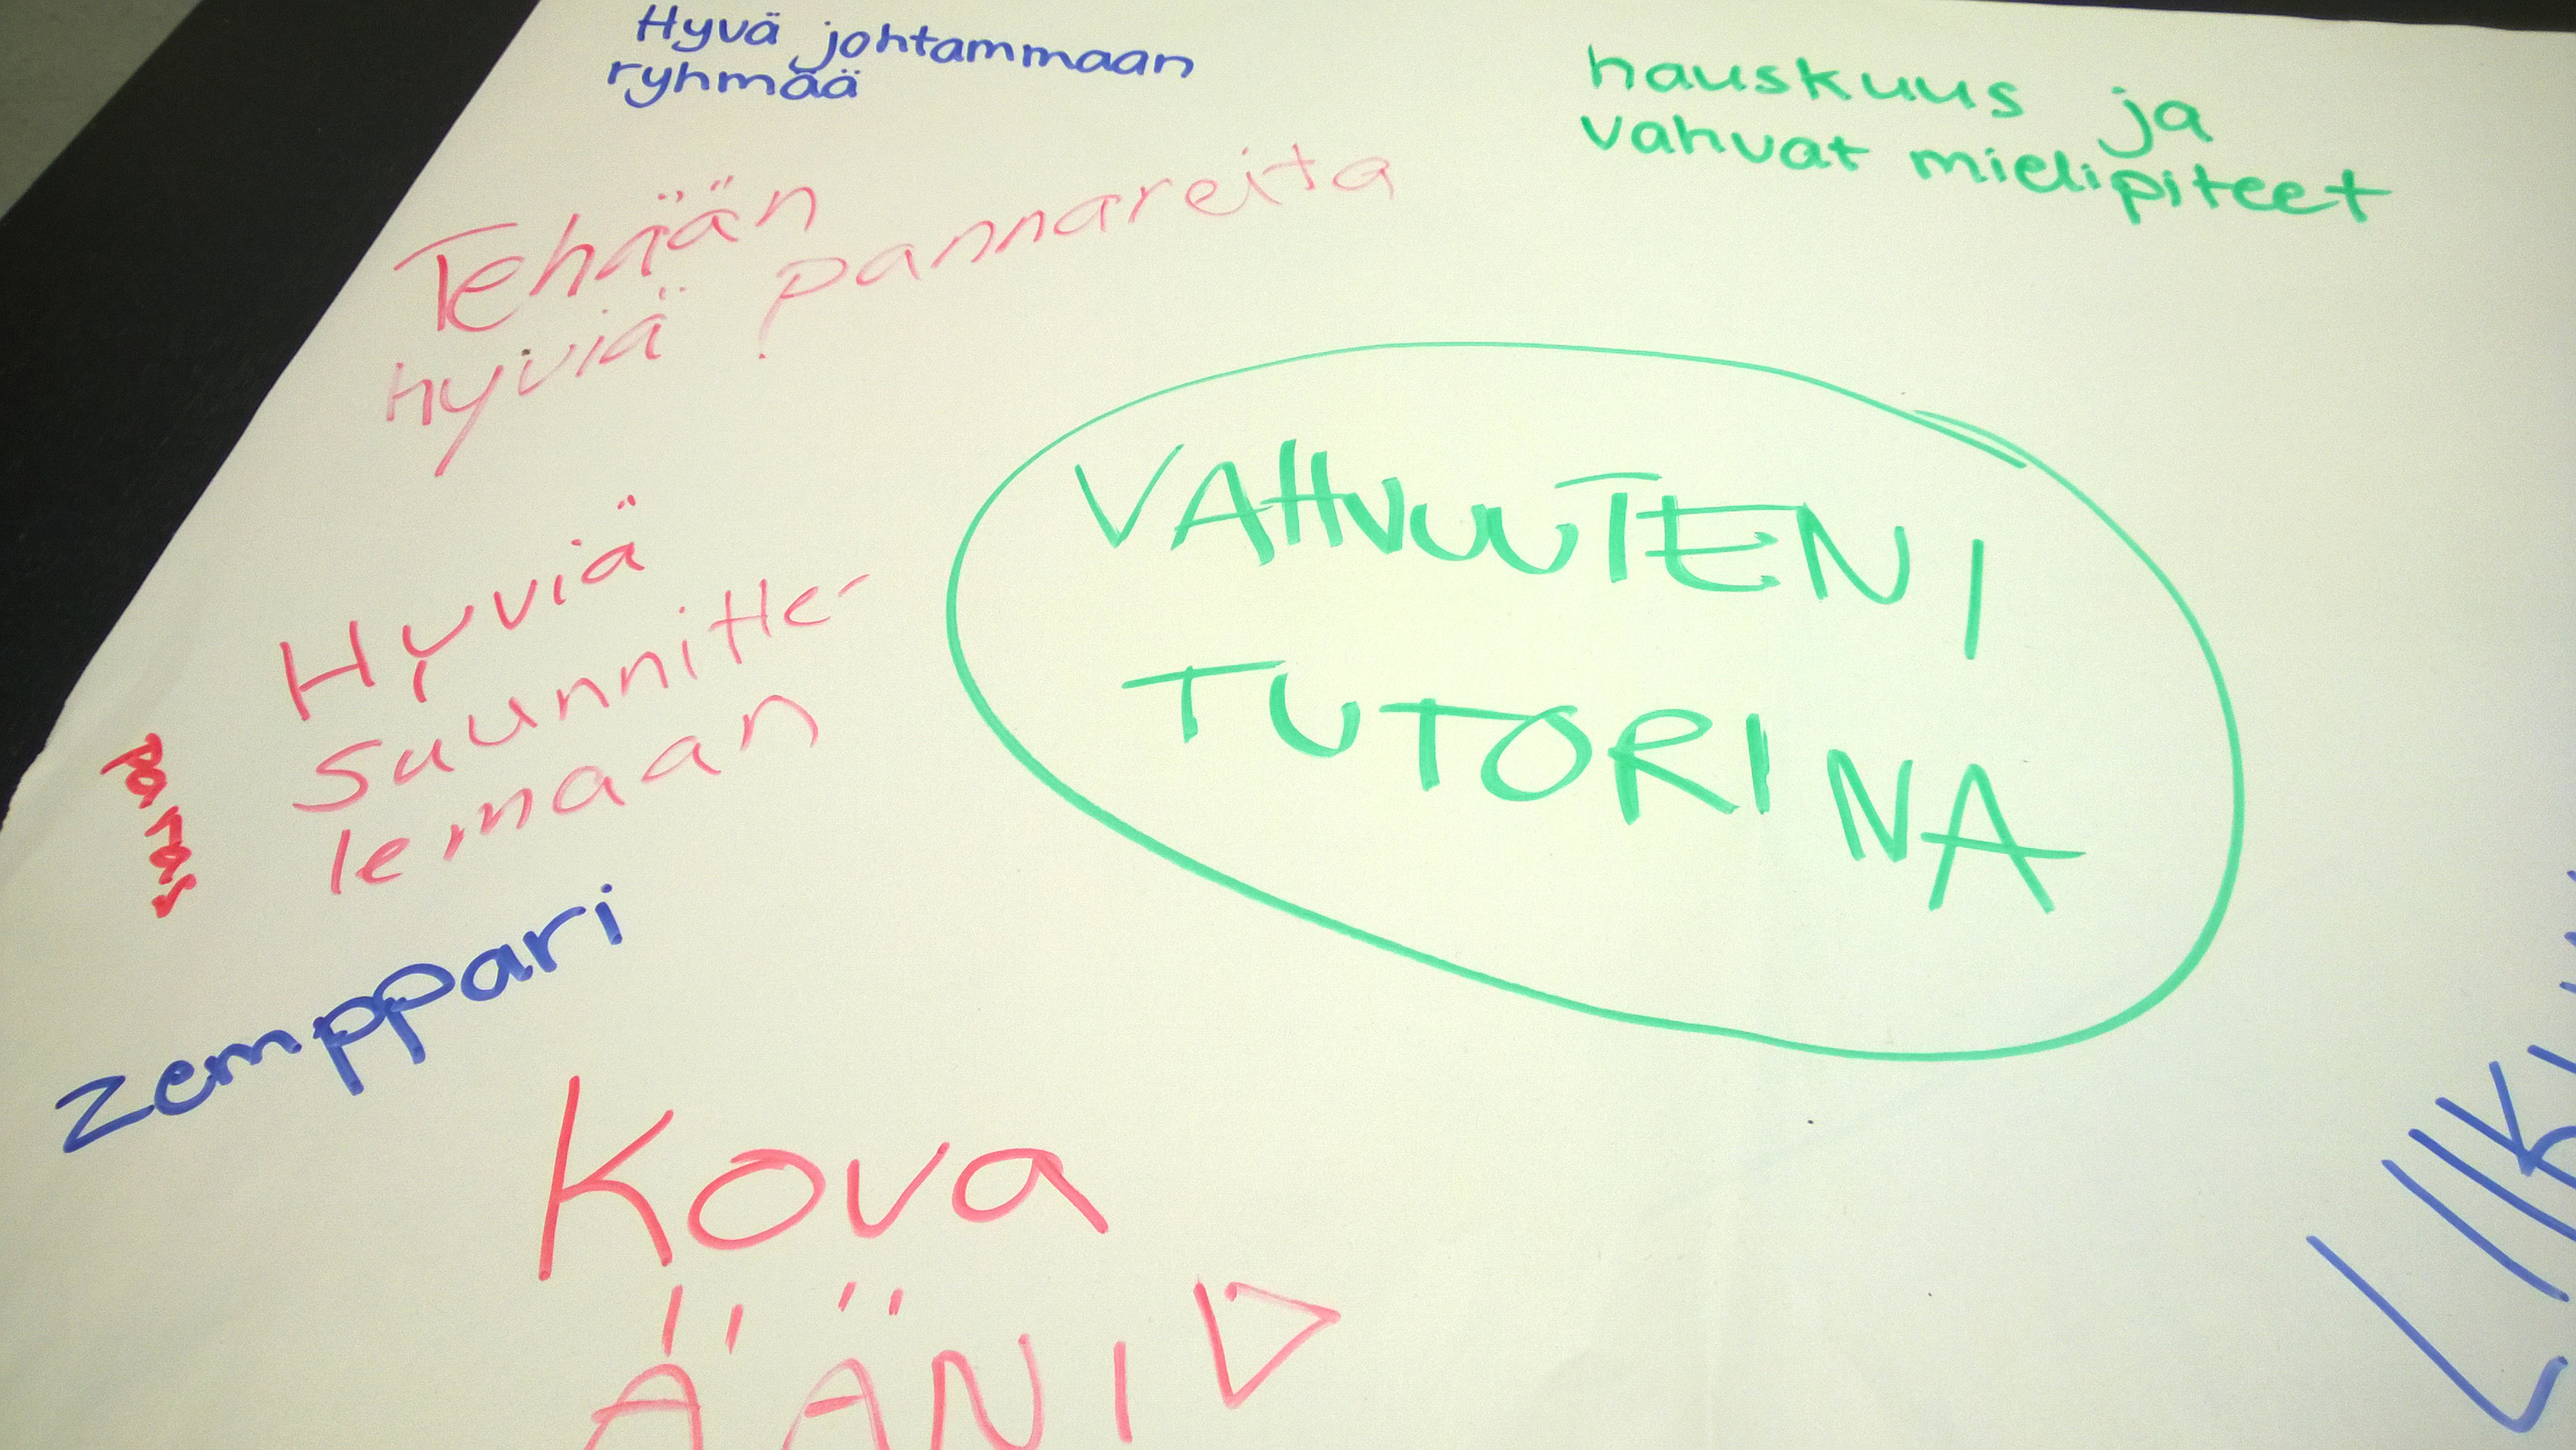 Hyvä johtammaan
ryhmää
hauskuus ja
vahvat mielipiteet
Tehään
hyviä pannareita
VAHVUUTENI
TUTORINA
Hyviä
suunnitte-
lemaan
paras
zemppari
Kova
ÄÄNI